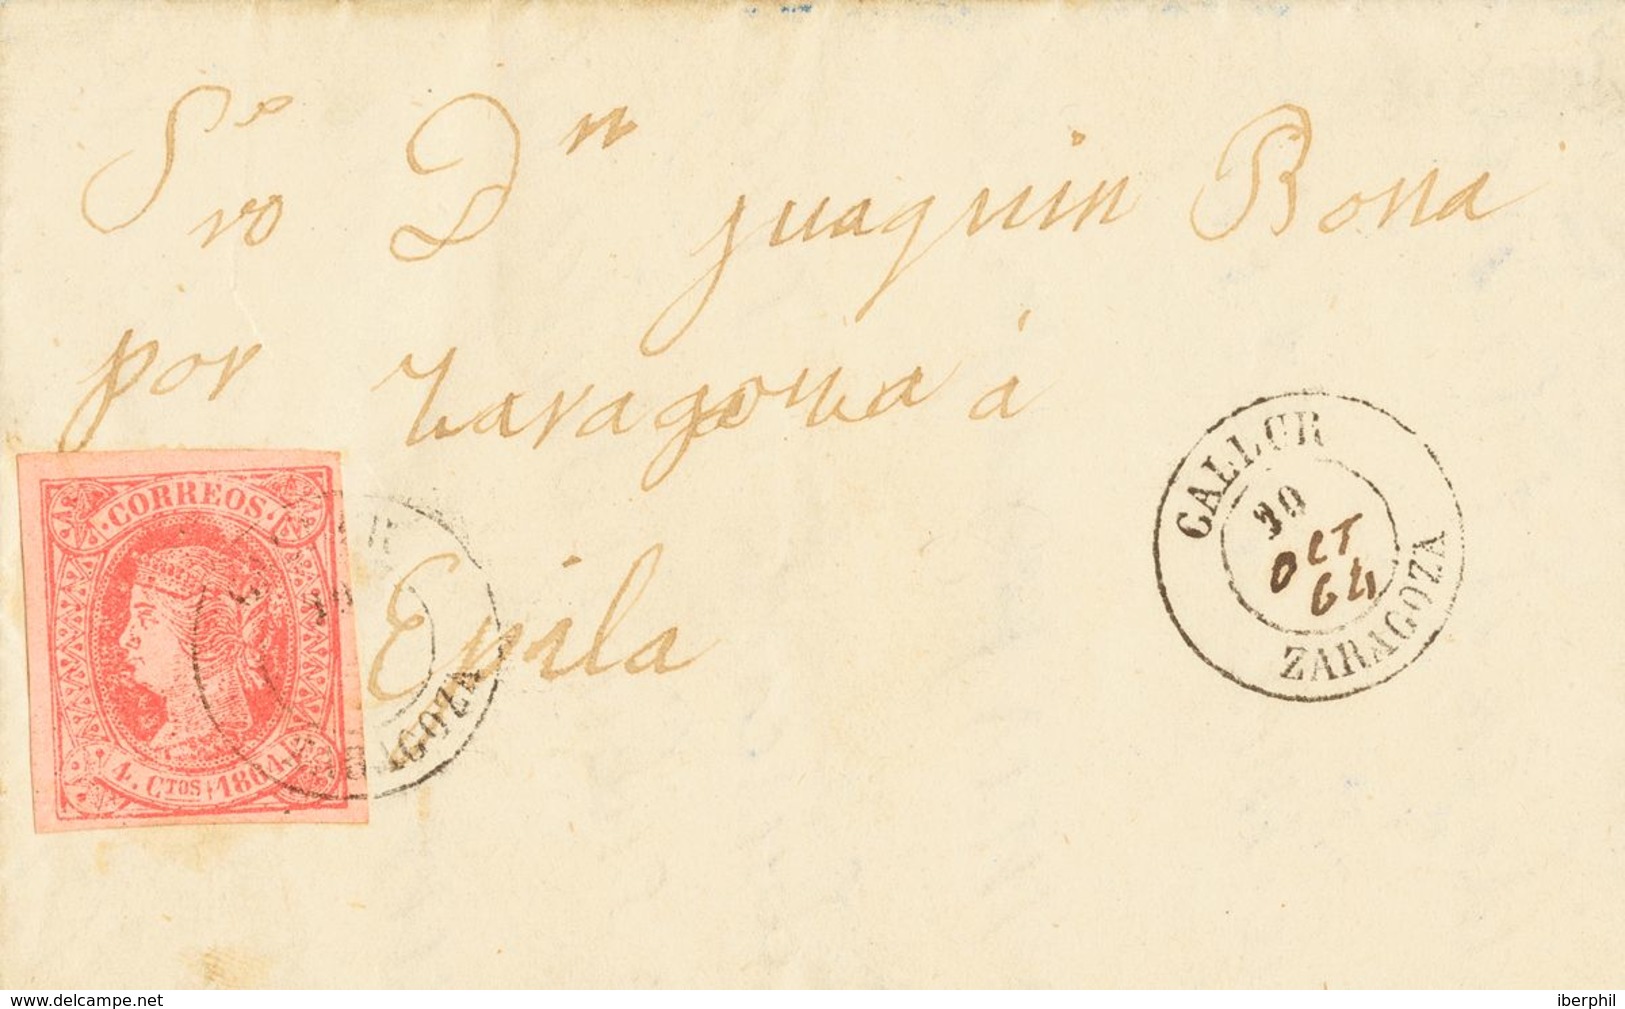 Sr Dn juaquin Bona
por Zaragoza á
Epila
CORREOS
4. CTOS 1864
ZARAGOZA
GALLUR
20
OCT
64
ZARAGOZA
www.delcampe.net
iberphil